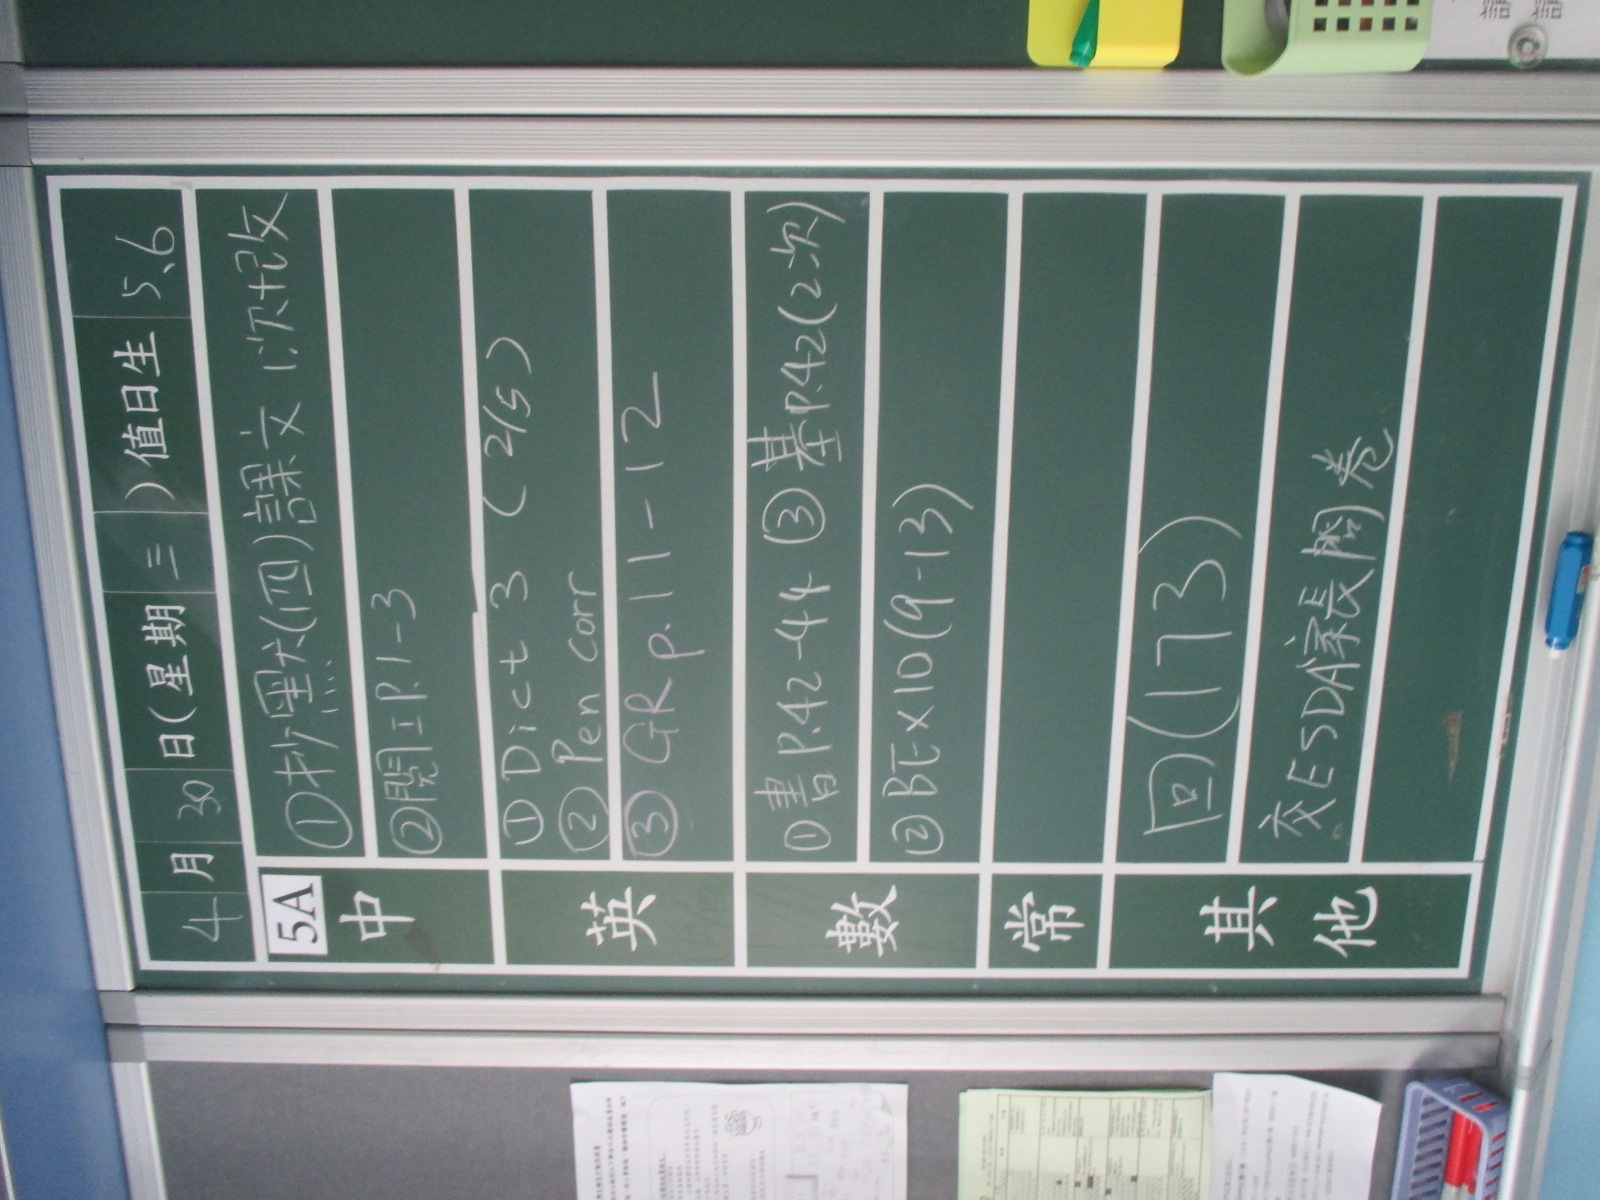 4月30日(星期三)值日生 5、6
5A
中
①抄默(四)課文1次+改
②閱工P.1-3
英
①Dict 3 (2/5)
②Pen corr
③GR p.11-12
數
①書P.42-44 ③基P.42(2次)
②BEx10(9-13)
常
其他
回(173)
交ESDA家長問卷